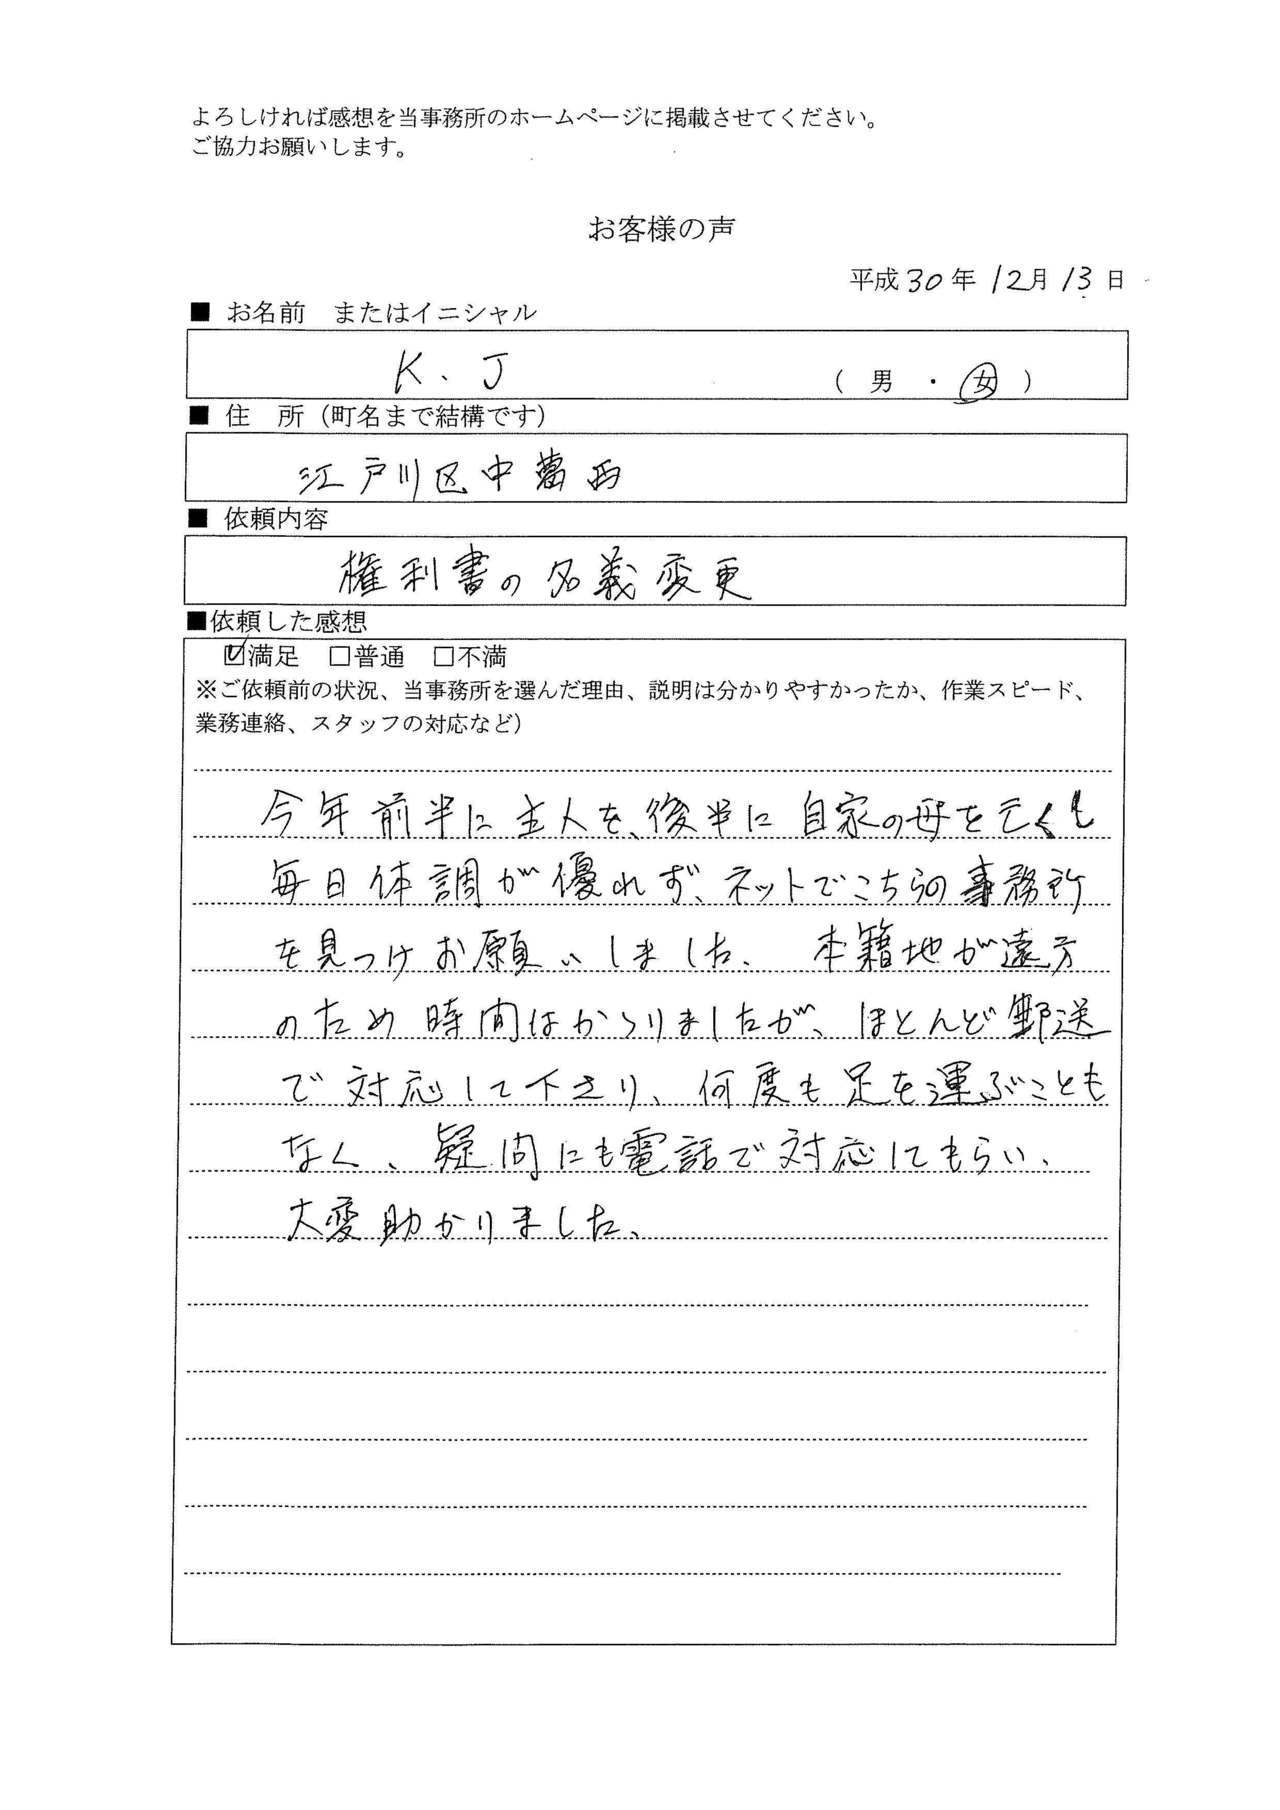 よろしければ感想を当事務所のホームページに掲載させてください。
ご協力お願いします。
お客様の声
平成30年12月13日
■ お名前 またはイニシャル
K、J （ 男 ・ 女 ）
■ 住 所（町名まで結構です）
江戸川区中葛西
■ 依頼内容
権利書の名義変更
■依頼した感想
☑満足 □普通 □不満
※ご依頼前の状況、当事務所を選んだ理由、説明は分かりやすかったか、作業スピード、
業務連絡、スタッフの対応など）
今年前半に主人を、後半に自家の母を亡くし
毎日体調が優れず、ネットでこちらの事務所
を見つけお願いしました、 本籍地が遠方
のため時間はかかりましたが、ほとんど郵送
で対応して下さり、何度も足を運ぶことも
なく、疑問にも電話で対応してもらい、
大変助かりました、